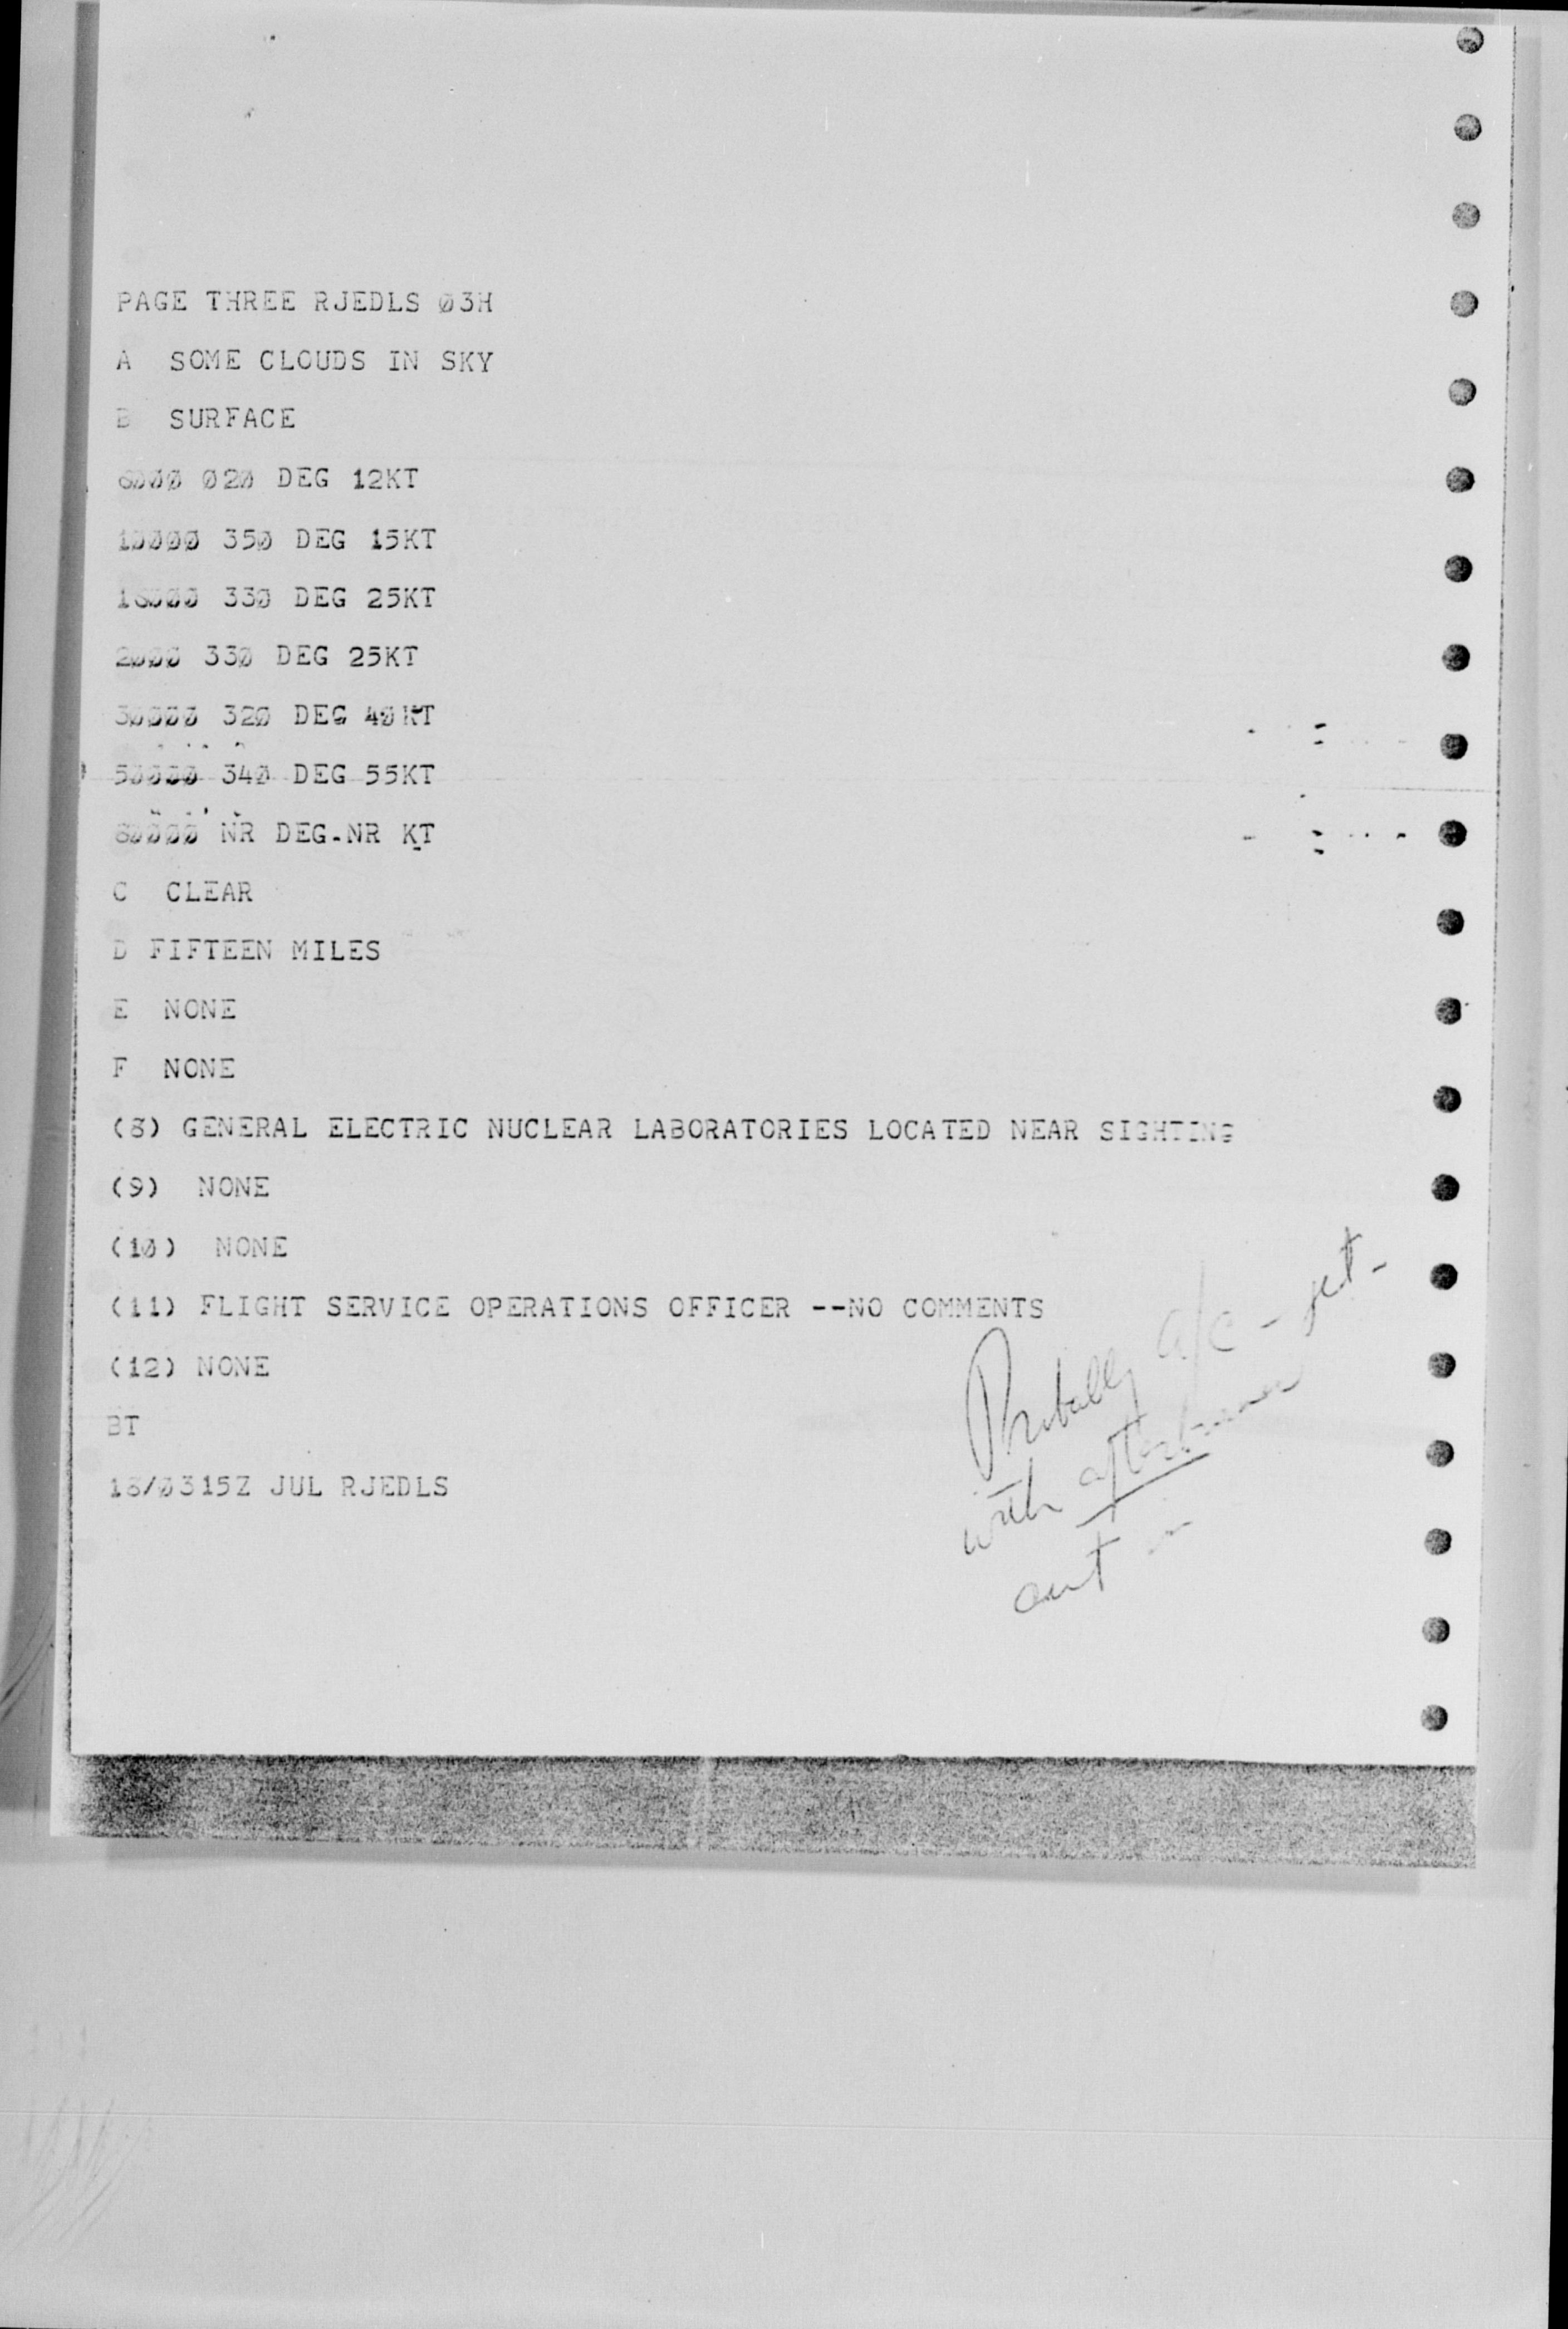 PAGE THREE RJEDLS Ø3H
A SOME CLOUDS IN SKY
B SURFACE
6ØØØ Ø2Ø DEG 12KT
1ØØØØ 35Ø DEG 15KT
16ØØØ 33Ø DEG 25KT
2ØØØ 33Ø DEG 25KT
3ØØØØ 32Ø DEG 4ØKT
5ØØØØ 34Ø DEG 55KT
8ØØØØ NR DEG-NR KT
C CLEAR
D FIFTEEN MILES
E NONE
F NONE
(8) GENERAL ELECTRIC NUCLEAR LABORATORIES LOCATED NEAR SIGHTING
(9) NONE
(1Ø) NONE
(11) FLIGHT SERVICE OPERATIONS OFFICER --NO COMMENTS
(12) NONE
BT
18/Ø315Z JUL RJEDLS
Probably a/c - jet -
with afterburner
cut